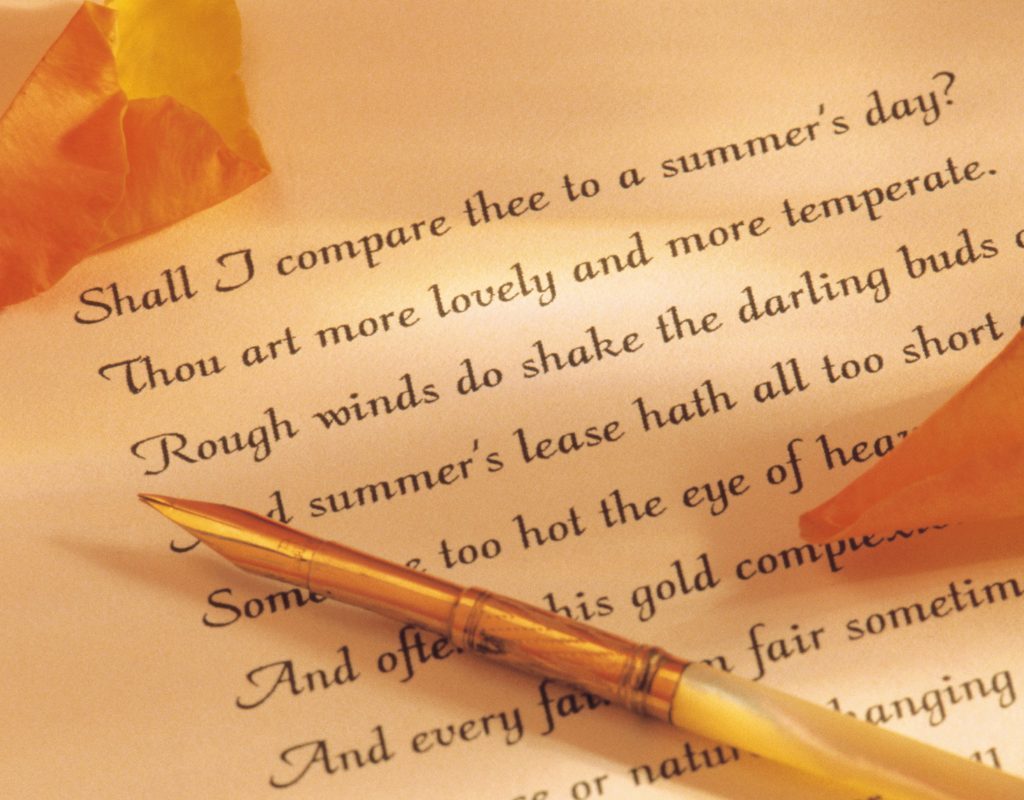 Shall I compare thee to a summer's day?
Thou art more lovely and more temperate.
Rough winds do shake the darling buds
summer's lease hath all too short
too hot the eye of
his gold
And fair sometim
And every
or